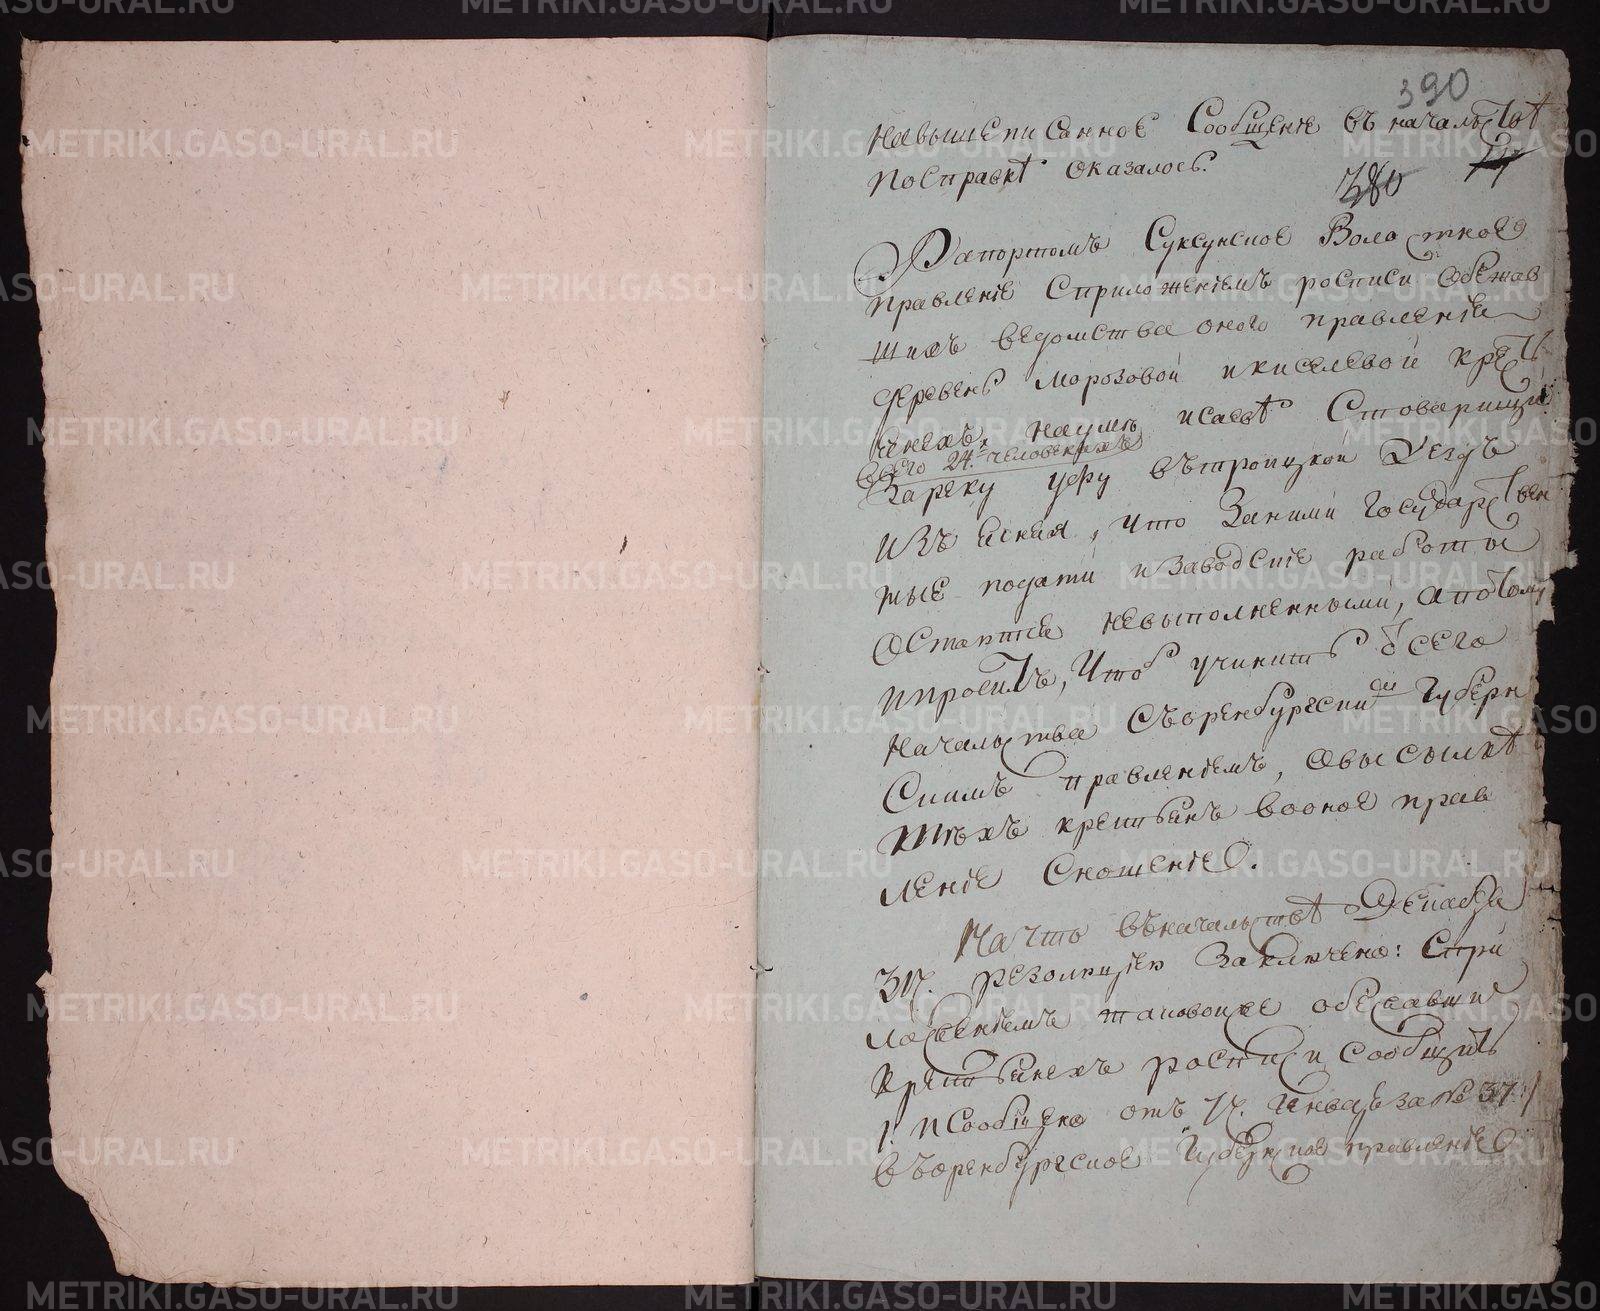 390
Навышеписанное Сообщение въ начальствѣ
посправкѣ оказалось.
380
Рапортомъ Суксунское Волостное
правление Сприложениемъ росписи обежав
шихъ ведомства оного правления
деревень Морозовой икиселевой крестья
ненахъ, наумѣ исаевѣ Стоварищи
всего 24. человекахъ
Зареку уфу вътроицкой уездъ
изъ Ясняя, что Заними государствен
ные подати изаводские работы
Остаются невыполненными, апотому
ипроситъ, Чтоб учинить Сего
Начальства Съоренбургским губерн
Скимъ правлениемъ, овысылкѣ
тѣхъ крестьянъ воное прав
ление Сношение.
Начто въначальствѣ Декабря
31. резолюциею Заключено: Спри
ложениемъ таковоиже обежавши
крестьянахъ росписи сообщить
/. иСообщено отъ 17. Генваря за № 37 /
въоренбургское Губернское правление
METRIKI.GASO-URAL.RU